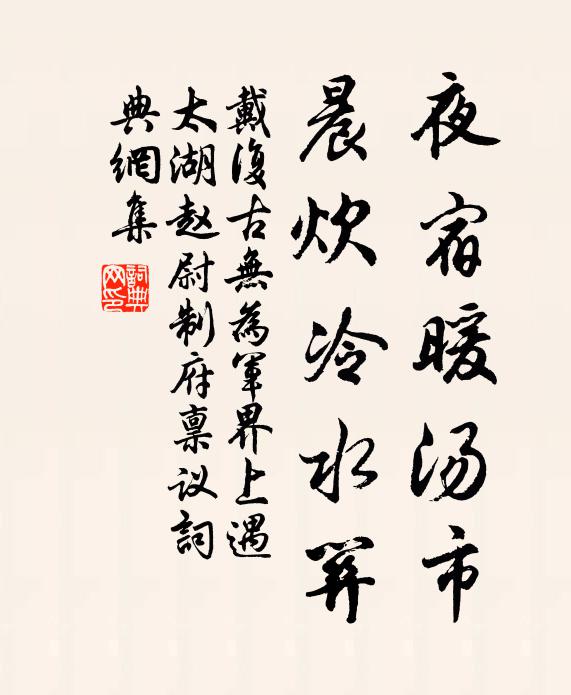 夜宿暖汤市
晨炊冷水关
戴復古無為軍界上遇
太湖赵尉制府禀议詞
典網集
詞典網印